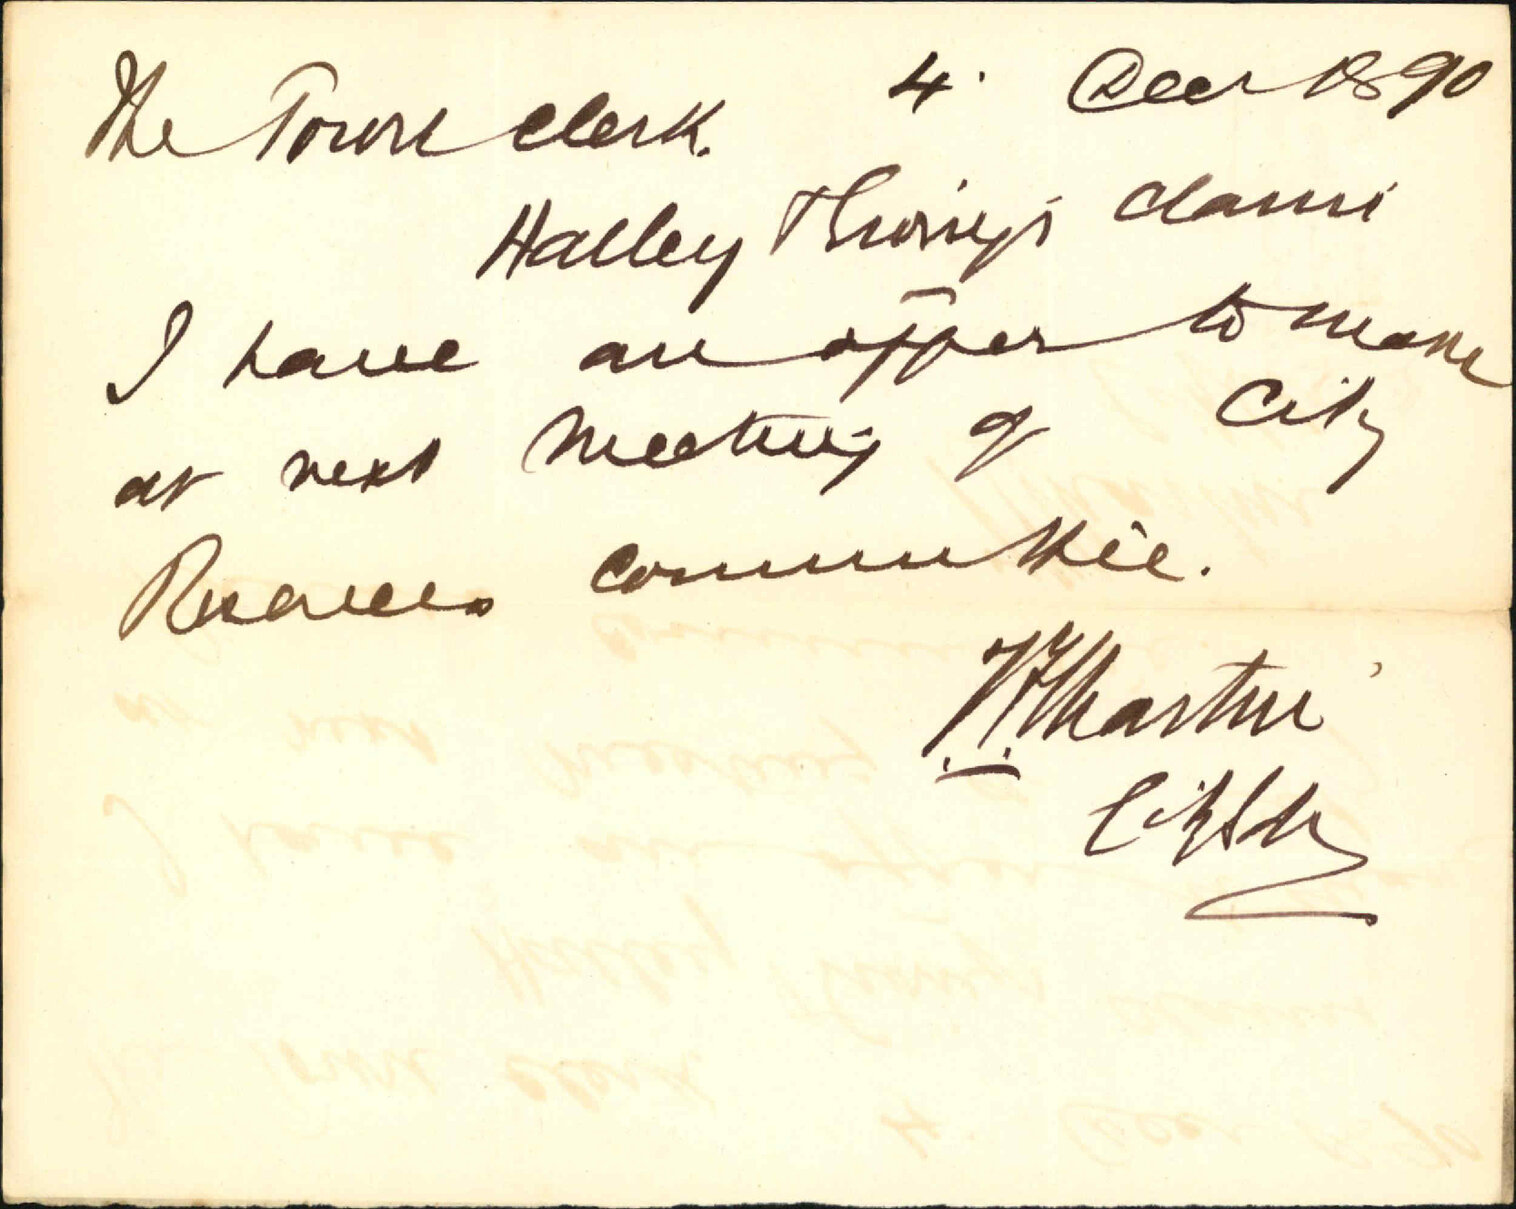 The Town Clerk. 4. Decr 1890
Halley & Ewing's claim
I have an offer to make
at next meeting of City
Reserves Committee.
Martin
City Sol